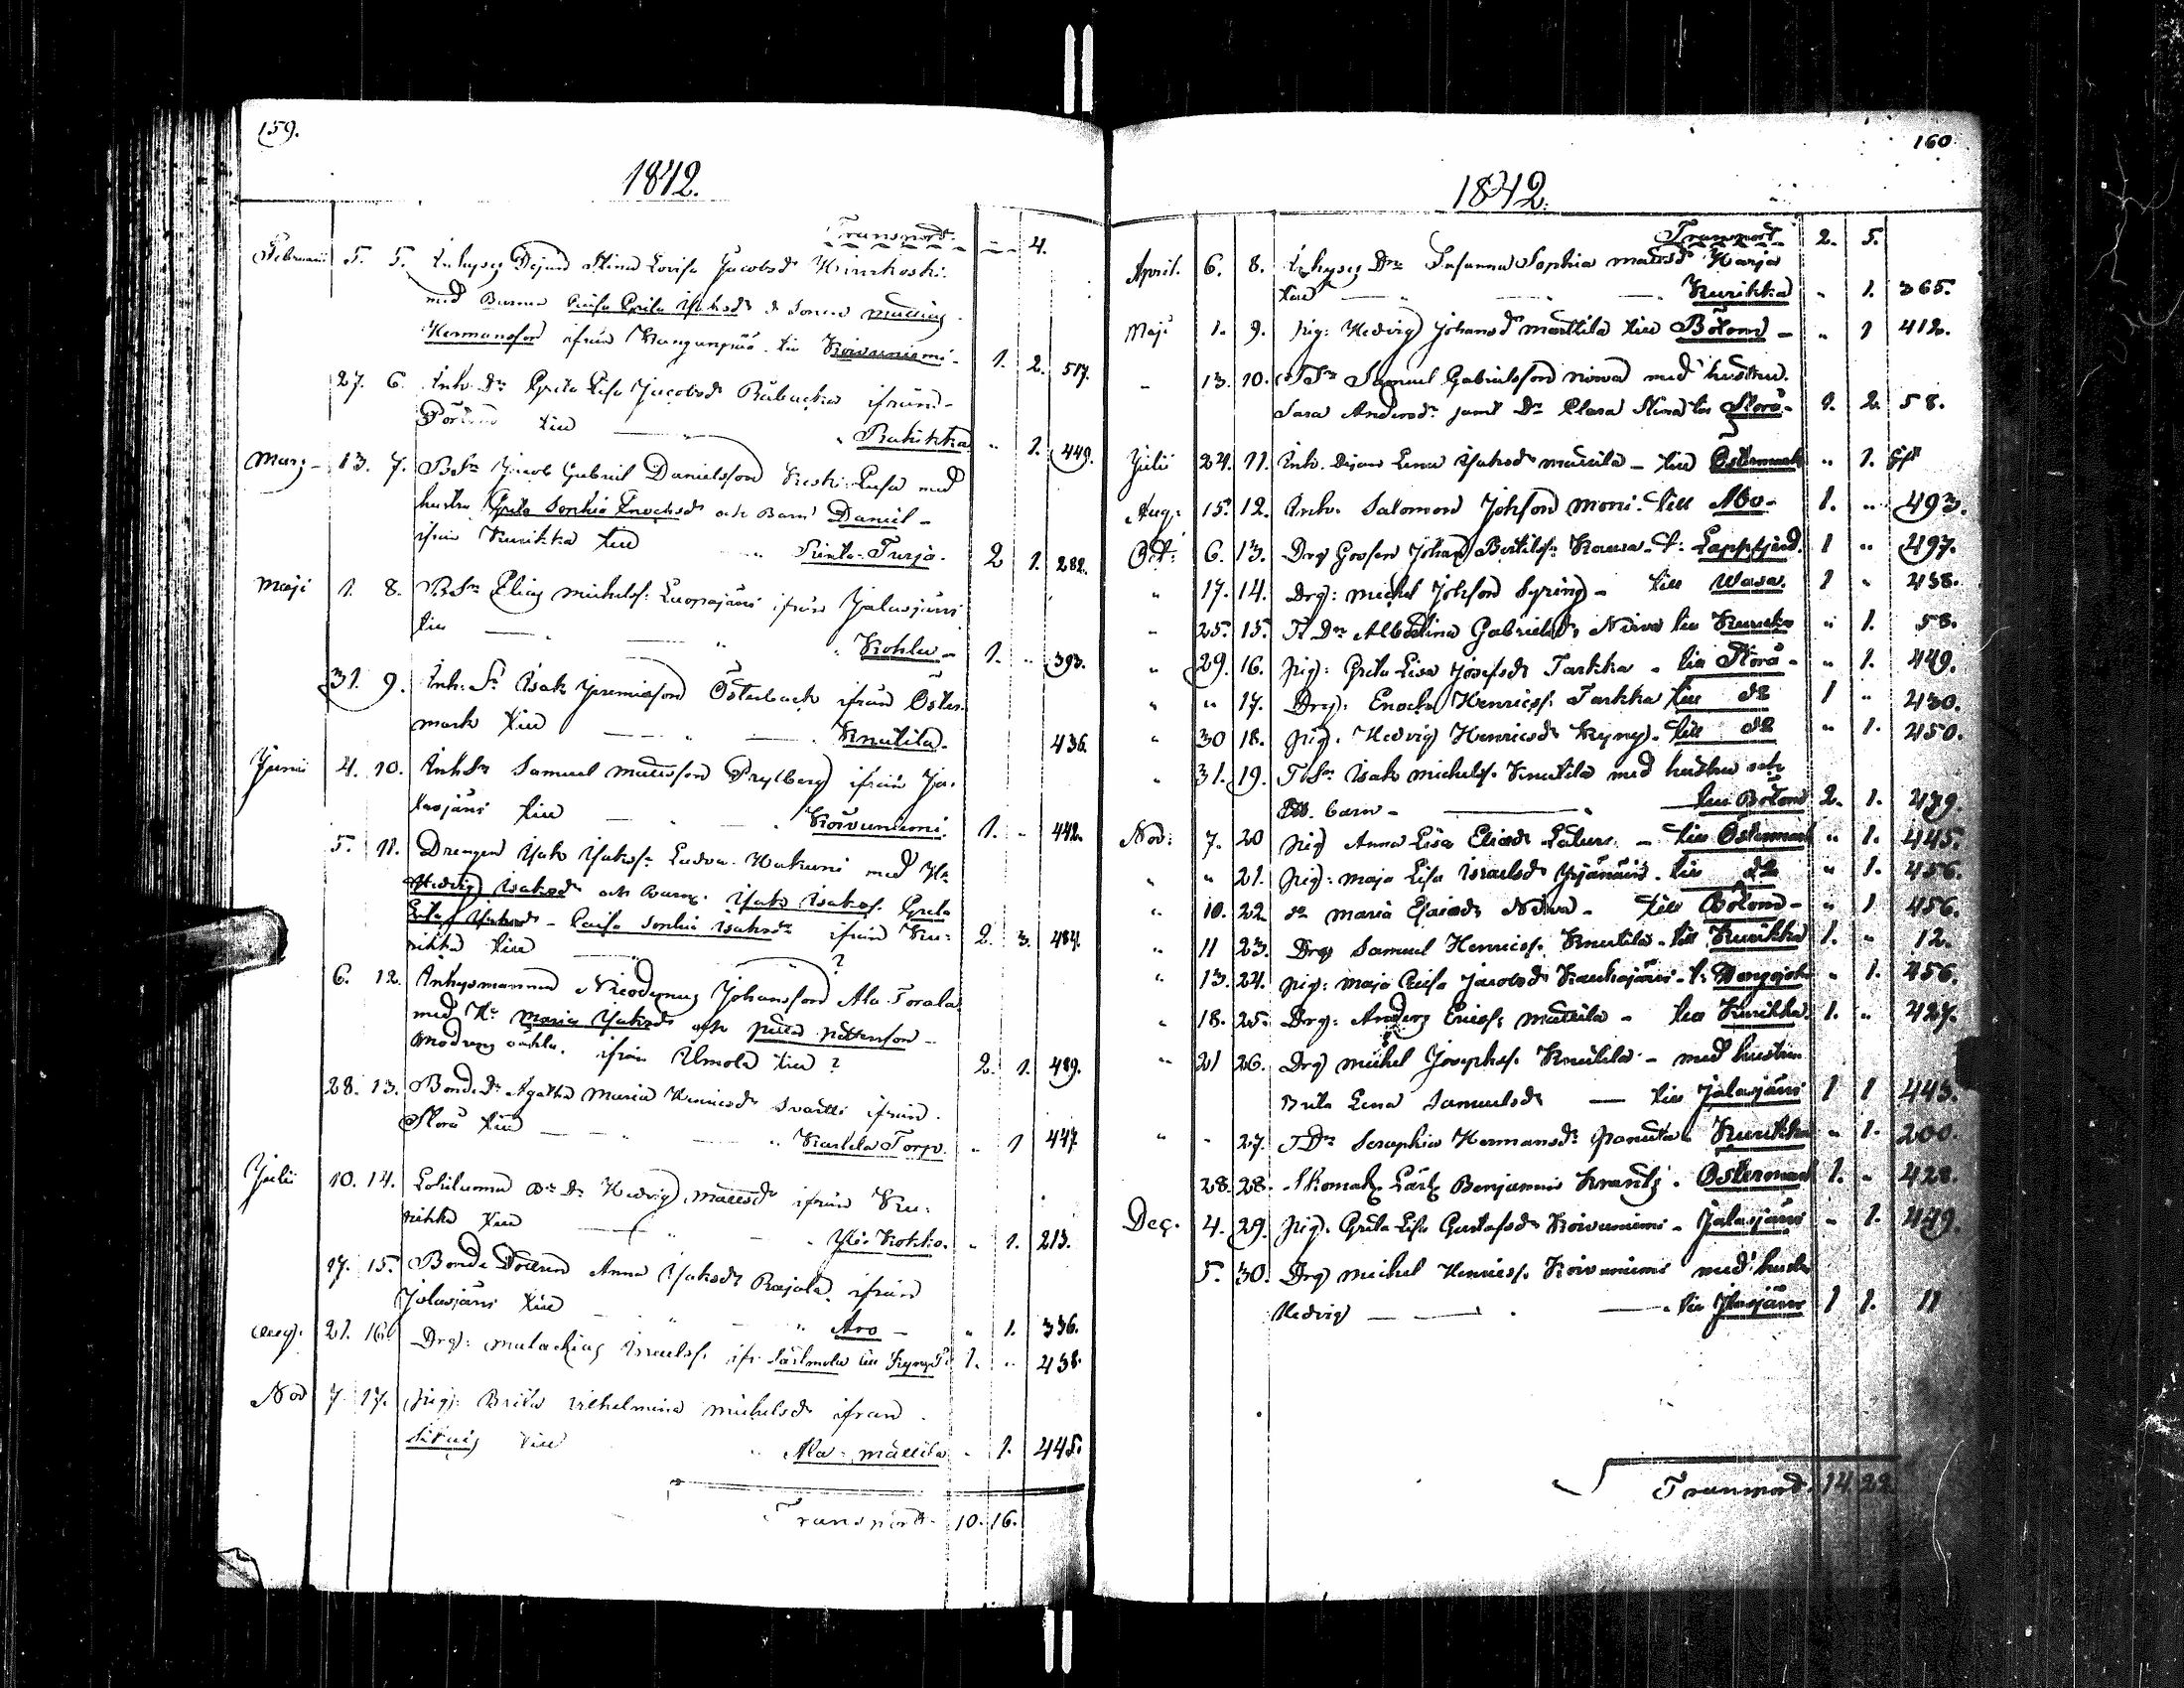 159.
1842.
Transport. — 4.
Februarii 5. 5. Inhyses Dejan Stina Lovisa Jacobsdr Hirvikoski
med Barnen Caisa Greta Isaksdr & Sonen Mattias
Hermansson ifrån Kanganpää till Koivuniemi 1. 2. 517.
27. 6. Inh. Dr Greta Lisa Jacobsdr Råbacka ifrån
Pörtom till Rahikka „ 1. 449.
Marz 13. 7. BSn Jacob Gabriel Danielsson Keski-Lufa med
hustru Greta Sophia Enochsdr och Barn Daniel
ifrån Kurikka till „ Turja. 2 1. 282.
Maji 1. 8. BSn Elias Michelss: Luopajärvi ifrån Jalasjärvi
till „ Kohlu 1. „ 393.
31. 9. Inh: Sn Isak Jeremiasson Österback ifrån Öster-
mark till „ Knutila. 436.
Junii 4. 10. InhSn Samuel Mattsson Prylberg ifrån Ja-
lasjärvi till „ Koivuniemi. 1. „ 442.
5. 11. Drengen Isak Isakss: Ladva-Hakuni med H:
Hedvig Isaksdr och Barn: Isak Isakss. Greta
Isaksdr – Caisa Sophia Isaksdr ifrån Ku-
rikka till ? 2. 3. 484.
6. 12. Inhysmannen Nicodemus Johansson Ala-Torala
med H: Maria Isaksdr och Petter Pettersson
ifrån Ilmola till ? 2. 1. 489.
28. 13. Bondedr Agatha Maria Henricsdr Svartti ifrån
Storå till „ Karhila Torp. „ 1 447
Julii 10. 14. Lohiluoma B: Dr Hedvig Mattsdr ifrån Ku-
rikka till „ Yli-Kohko. „ 1. 213.
17. 15. Bonde Dottren Anna Isaksdr Rajala ifrån
Jalasjärvi till „ Aro „ 1. 336.
Aug: 21. 16. Drg: Malachias Israelss. ifr. till Kyny 1. „ 438.
Nov 7 17. Pig: Brita Vilhelmina Michelsdr ifrån
till „ Ala-Mattila „ 1. 445.
Transport. 10. 16.
160
1842.
Transport 2. 5.
April. 6. 8. Inhyses Dr Susanna Sophia Mattsdr Harja
till Kurikka „ 1. 365.
Maji 1. 9. Pig: Hedvig Johansdr Marttila till Bötom „ 1 412.
„ 13. 10. TSn Samuel Gabrielsson Nirva med hustru
Sara Andersdr samt Dr Clara Stina till Storå 1. 2. 58.
Julii 24. 11. Inh. Dejan Lena Isaksdr Mattila till Östermark „ 1.
Aug: 15. 12. Inh. Salomon Johsson Moni till Åbo 1. „ 493.
Oct: 6. 13. Drg Gossen Johan Bertilss: Kousa t: Lappfjerd. 1 „ 497.
„ 17. 14. Drg: Michel Johsson Syring till Wasa 1 „ 438.
„ 25. 15. T Dr Albertina Gabrielsdr Nirva till Kurikka „ 1. 58.
„ 29. 16. Pig: Greta Lisa Josefsdr Tarkka till Storå „ 1. 449.
„ „ 17. Drg: Enoch Henricss: Tarkka till do 1 „ 430.
„ 30 18. Pig: Hedvig Henricsdr Kyny till do „ 1. 450.
„ 31. 19. TSn Isak Michelss. Knutila med hustru och
barn till Bötom 2. 1. 479.
Nov: 7. 20 Pig Anna Lisa Eliasdr till Östermark „ 1. 445.
„ „ 21. Pig: Maja Lisa Israelsdr Yrjänäis till do „ 1. 456.
„ 10. 22. do Maria Esaiasdr Nirva till Bötom „ 1 456.
„ 11 23. Drg Samuel Henricss. Knutila till Kurikka 1. „ 12.
„ 13. 24. Pig: Maja Caisa Jacobsdr Kauhajärvi t: „ 1. 456.
„ 18. 25. Drg: Anders Ericss: Mattila till Kurikka. 1. „ 427.
„ 21 26. Drg Michel Josephss. Knutila med hustru
Brita Lena Samuelsdr till Jalasjärvi 1 1 443.
„ „ 27. TDr Seraphia Hermansdr Panula Kurikka „ 1. 200.
28. 28. Skomak. Lärl. Benjamin Krantz Östermark 1. „ 428.
Dec. 4. 29. Pig. Greta Lisa Gustafsdr Koivuniemi Jalasjärvi „ 1. 449.
5. 30. Drg Michel Henricss. Koivuniemi med hustru
Hedvig till Jlasjärvi 1 1. 11
Transport. 14. 22.